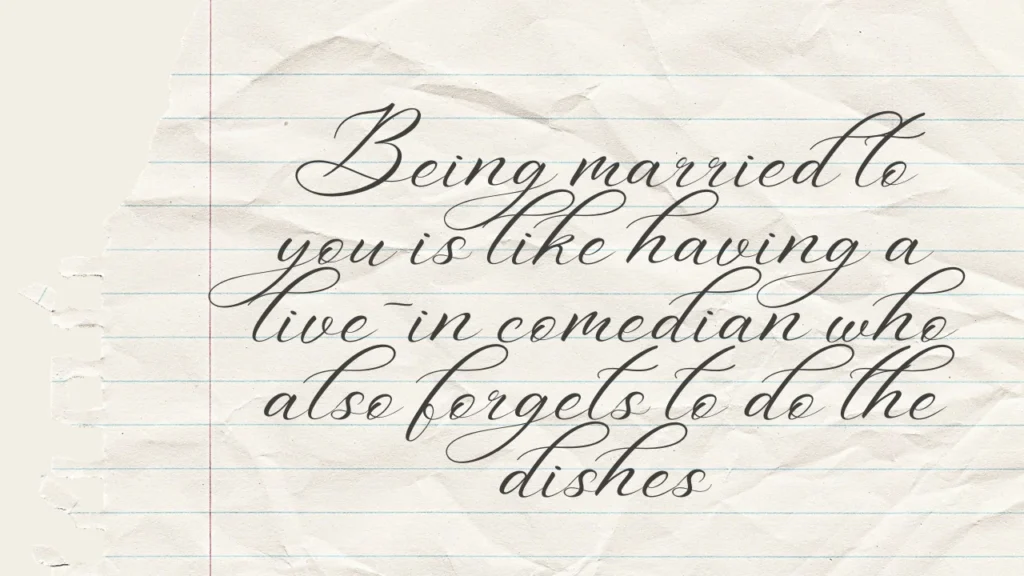 Being married to
you is like having a
live-in comedian who
also forgets to do the
dishes